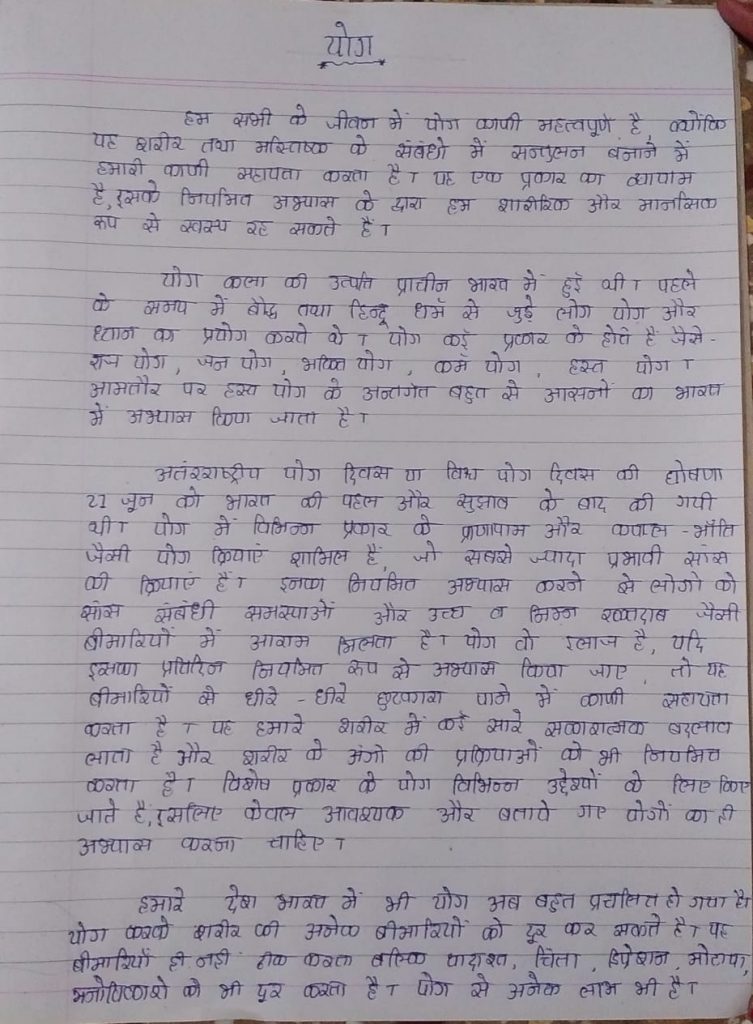 योग
हम सभी के जीवन में योग काफी महत्वपूर्ण है, क्योंकि
यह शरीर तथा मस्तिष्क के संबंधो में सन्तुलन बनाने में
हमारी काफी सहायता करता है। यह एक प्रकार का व्यायाम
है, इसके नियमित अभ्यास के द्वारा हम शारीरिक और मानसिक
रूप से स्वस्थ रह सकते है।
योग कला की उत्पत्ति प्राचीन भारत में हुई थी। पहले
के समय में बौद्ध तथा हिन्दू धर्म से जुड़े लोग योग और
ध्यान का प्रयोग करते थे। योग कई प्रकार के होते हैं जैसे-
राज योग, जन योग, भक्ति योग, कर्म योग, हस्त योग।
आमतौर पर हस्त योग के अन्तगत बहुत से आसनों का भारत
में अभ्यास किया जाता है।
अतंरराष्ट्रीय योग दिवस या विश्व योग दिवस की घोषणा
21 जून को भारत की पहल और सुझाव के बाद की गयी
थी। योग में विभिन्न प्रकार के प्राणायाम और कपाल-भाँति
जैसी योग क्रियाएं शामिल हैं, जो सबसे ज्यादा प्रभावी सांस
की क्रियाएं हैं। इनका नियमित अभ्यास करने से लोगो को
सांस संबंधी समस्याओं और उच्च व निम्न रक्तदाब जैसी
बीमारियों में आराम मिलता है। योग वो इलाज है, यदि
इसका प्रतिदिन नियमित रूप से अभ्यास किया जाए, तो यह
बीमारियों से धीरे-धीरे छुटकारा पाने में काफी सहायता
करता है। यह हमारे शरीर में कई सारे सकारात्मक बदलाव
लाता है और शरीर के अंगो की प्रक्रियाओं को भी नियमित
करता है। विशेष प्रकार के योग विभिन्न उद्देश्यों के लिए किए
जाते है, इसलिए केवल आवश्यक और बताये गए योगों का ही
अभ्यास करना चाहिए।
हमारे देश भारत में भी योग अब बहुत प्रचलित हो गया है।
योग करके शरीर की अनेक बीमारियों को दूर कर सकते है। यह
बीमारियाँ ही नही ठीक करता बल्कि यादाश्त, चिंता, डिप्रेशन, मोटापा,
मनोविकारो को भी दूर करता है। योग से अनेक लाभ भी है।